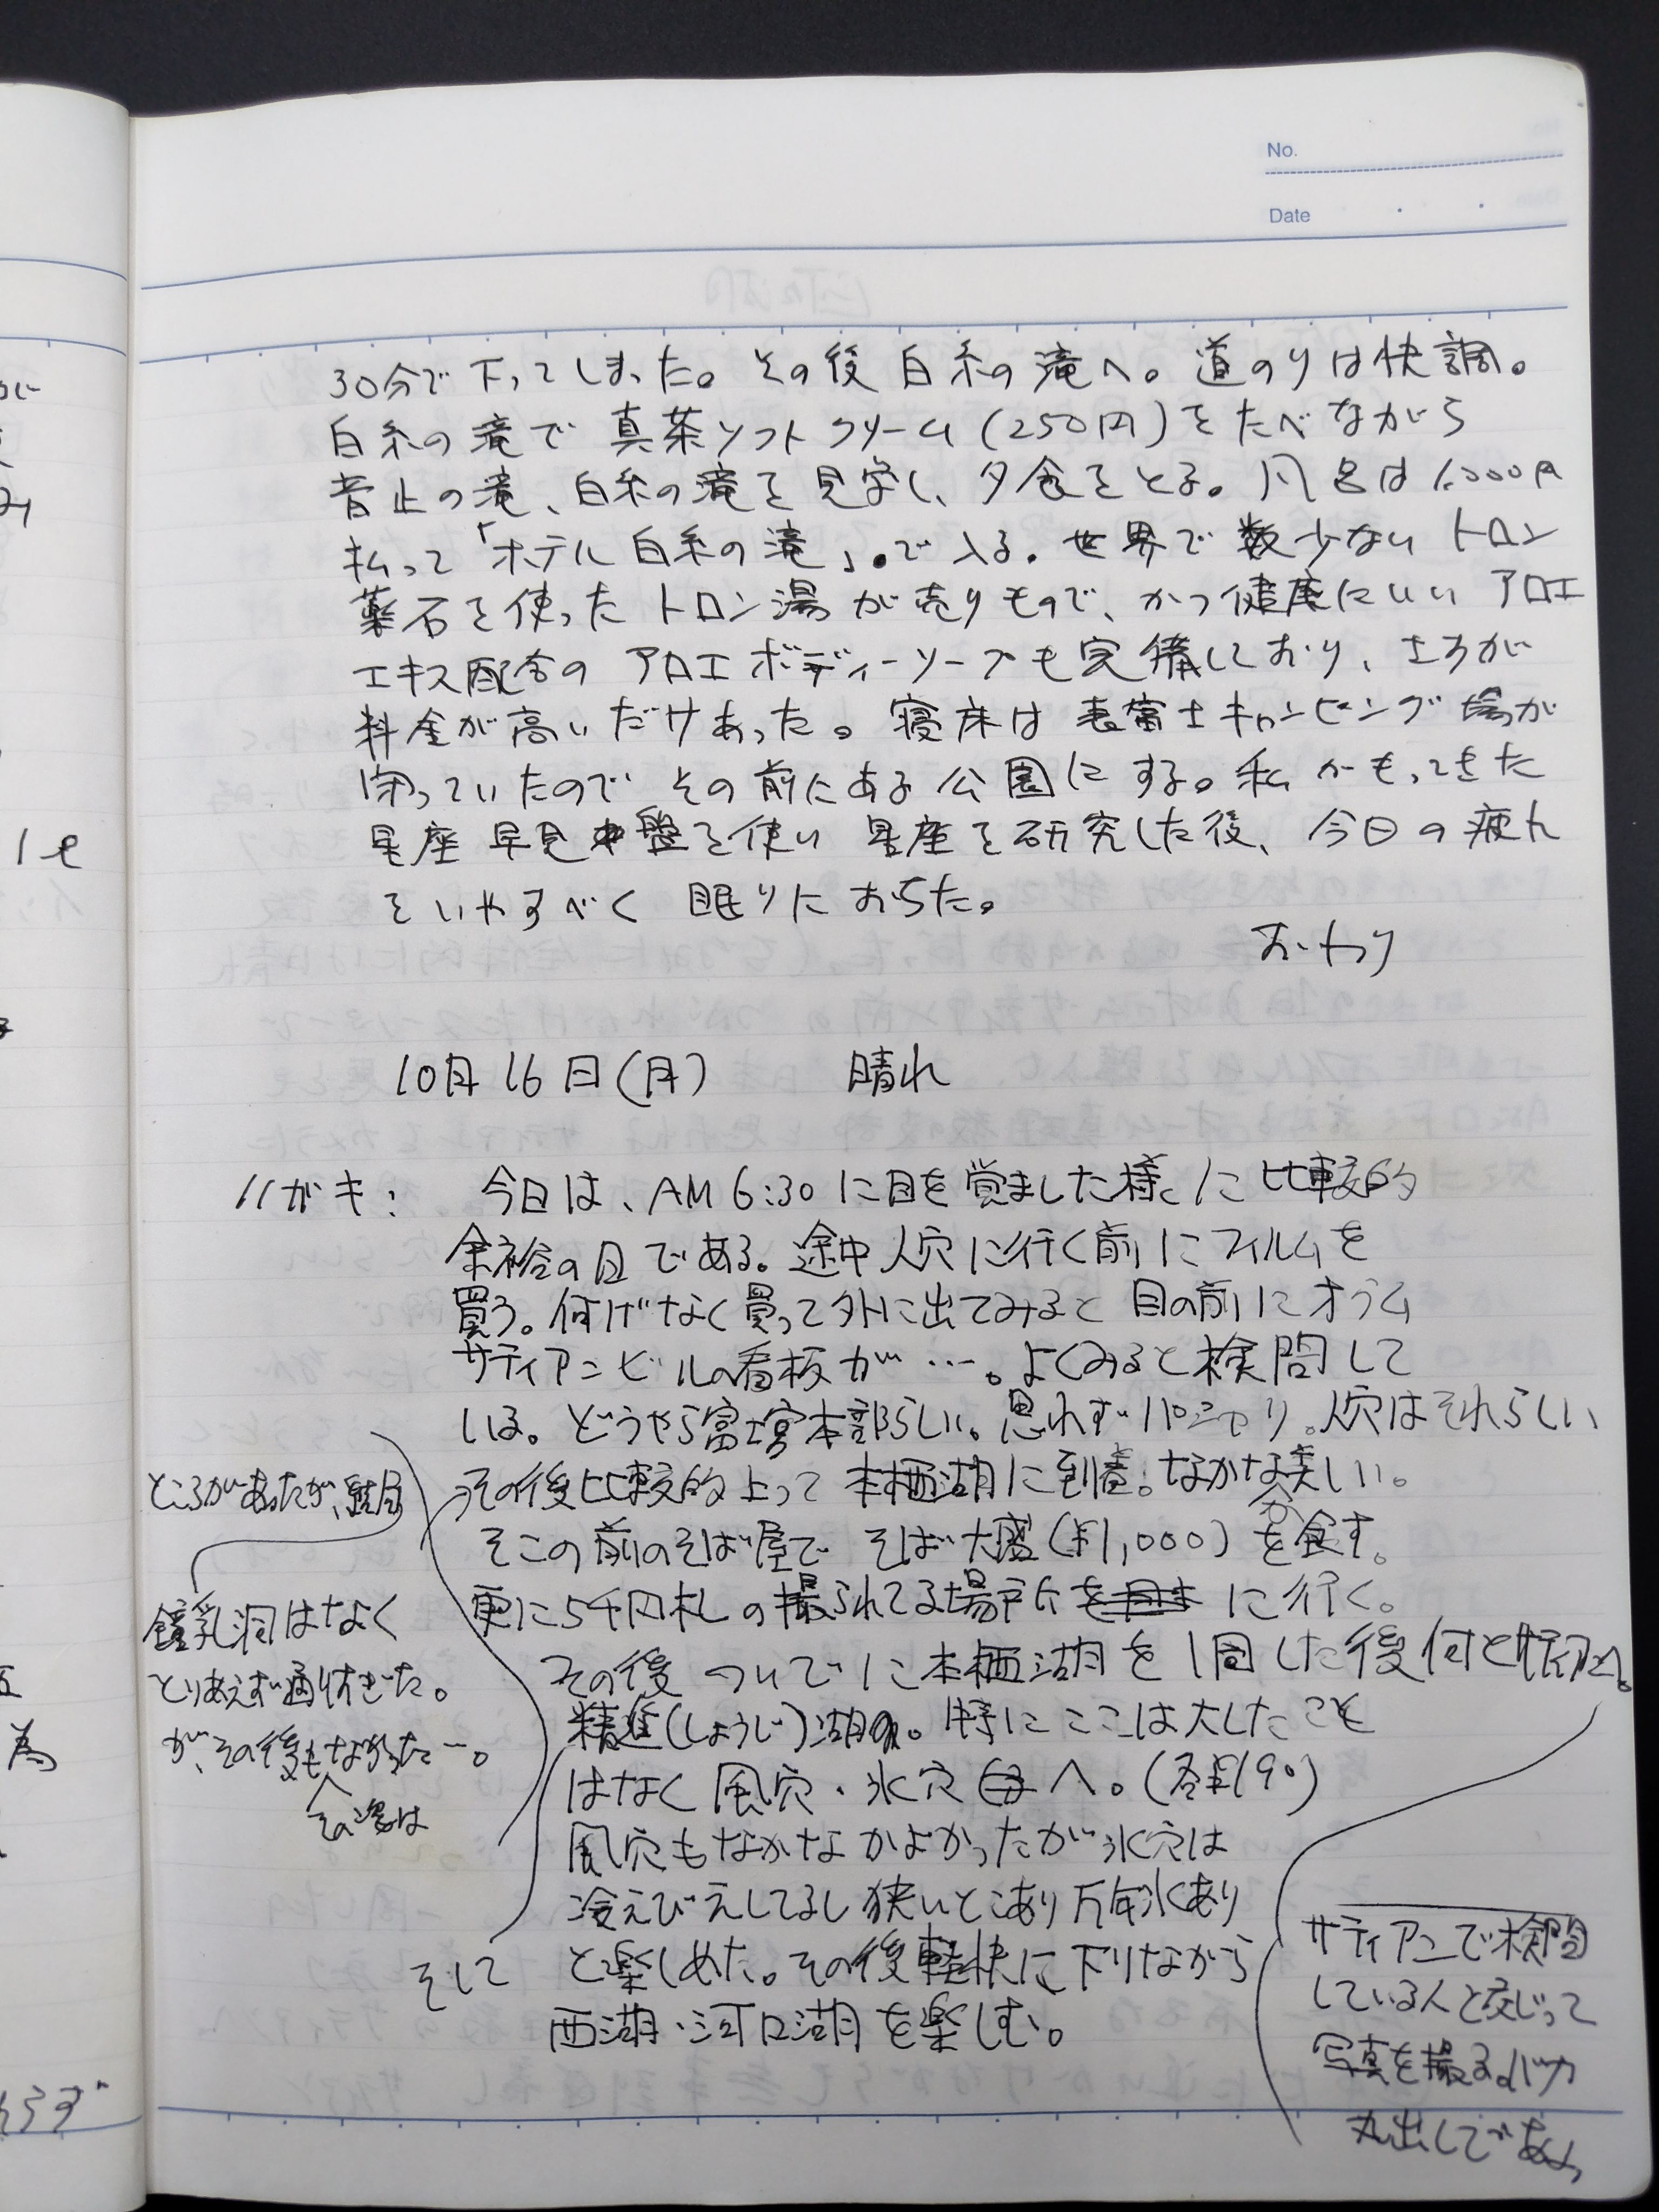 No.
Date
30分で下ってしまった。その後白糸の滝へ。道のりは快調。
白糸の滝で真茶ソフトクリーム(250円)をたべながら
音止の滝、白糸の滝を見学し、夕食をとる。風呂は1,000円
払って「ホテル白糸の滝」で入る。世界で数少ないトロン
薬石を使ったトロン湯が売りもので、かつ健康にいいアロエ
エキス配合のアロエボディーソープも完備しており、さすが
料金が高いだけあった。寝床は表富士キャンピング場が
閉っていたのでその前にある公園にする。私がもってきた
星座早見盤を使い星座を研究した後、今日の疲れ
をいやすべく眠りにおちた。
おわり
10月16日(月) 晴れ
ハガキ: 今日は、AM6:30に目を覚ました様に比較的
余裕の日である。途中人穴に行く前にフィルムを
買う。何げなく買って外に出てみると目の前にオウム
サティアンビルの看板が…。よくみると検問して
いる。どうやら富士宮本部らしい。思わずパシャリ。人穴はそれらしい
ところがあったが、結局
鐘乳洞はなく
とりあえず通りすぎた。
が、その後もなかった…。
その姿は
その後比較的上って本栖湖に到着。なかなか美しい。
そこの前のそば屋でそば大盛(¥1,000)を食す。
更に5千円札の撮られてる場所に行く。
その後ついでに本栖湖を1周した後何とサティアンへ。
サティアンで検問
している人と交じって
写真を撮る。バカ
丸出しである。
そして
精進(しょうじ)湖へ。特にここは大したこと
はなく風穴・氷穴へ。(各¥190)
風穴もなかなかよかったが氷穴は
冷えびえしてるし狭いとこあり万年氷あり
と楽しめた。その後軽快に下りながら
西湖・河口湖を楽しむ。